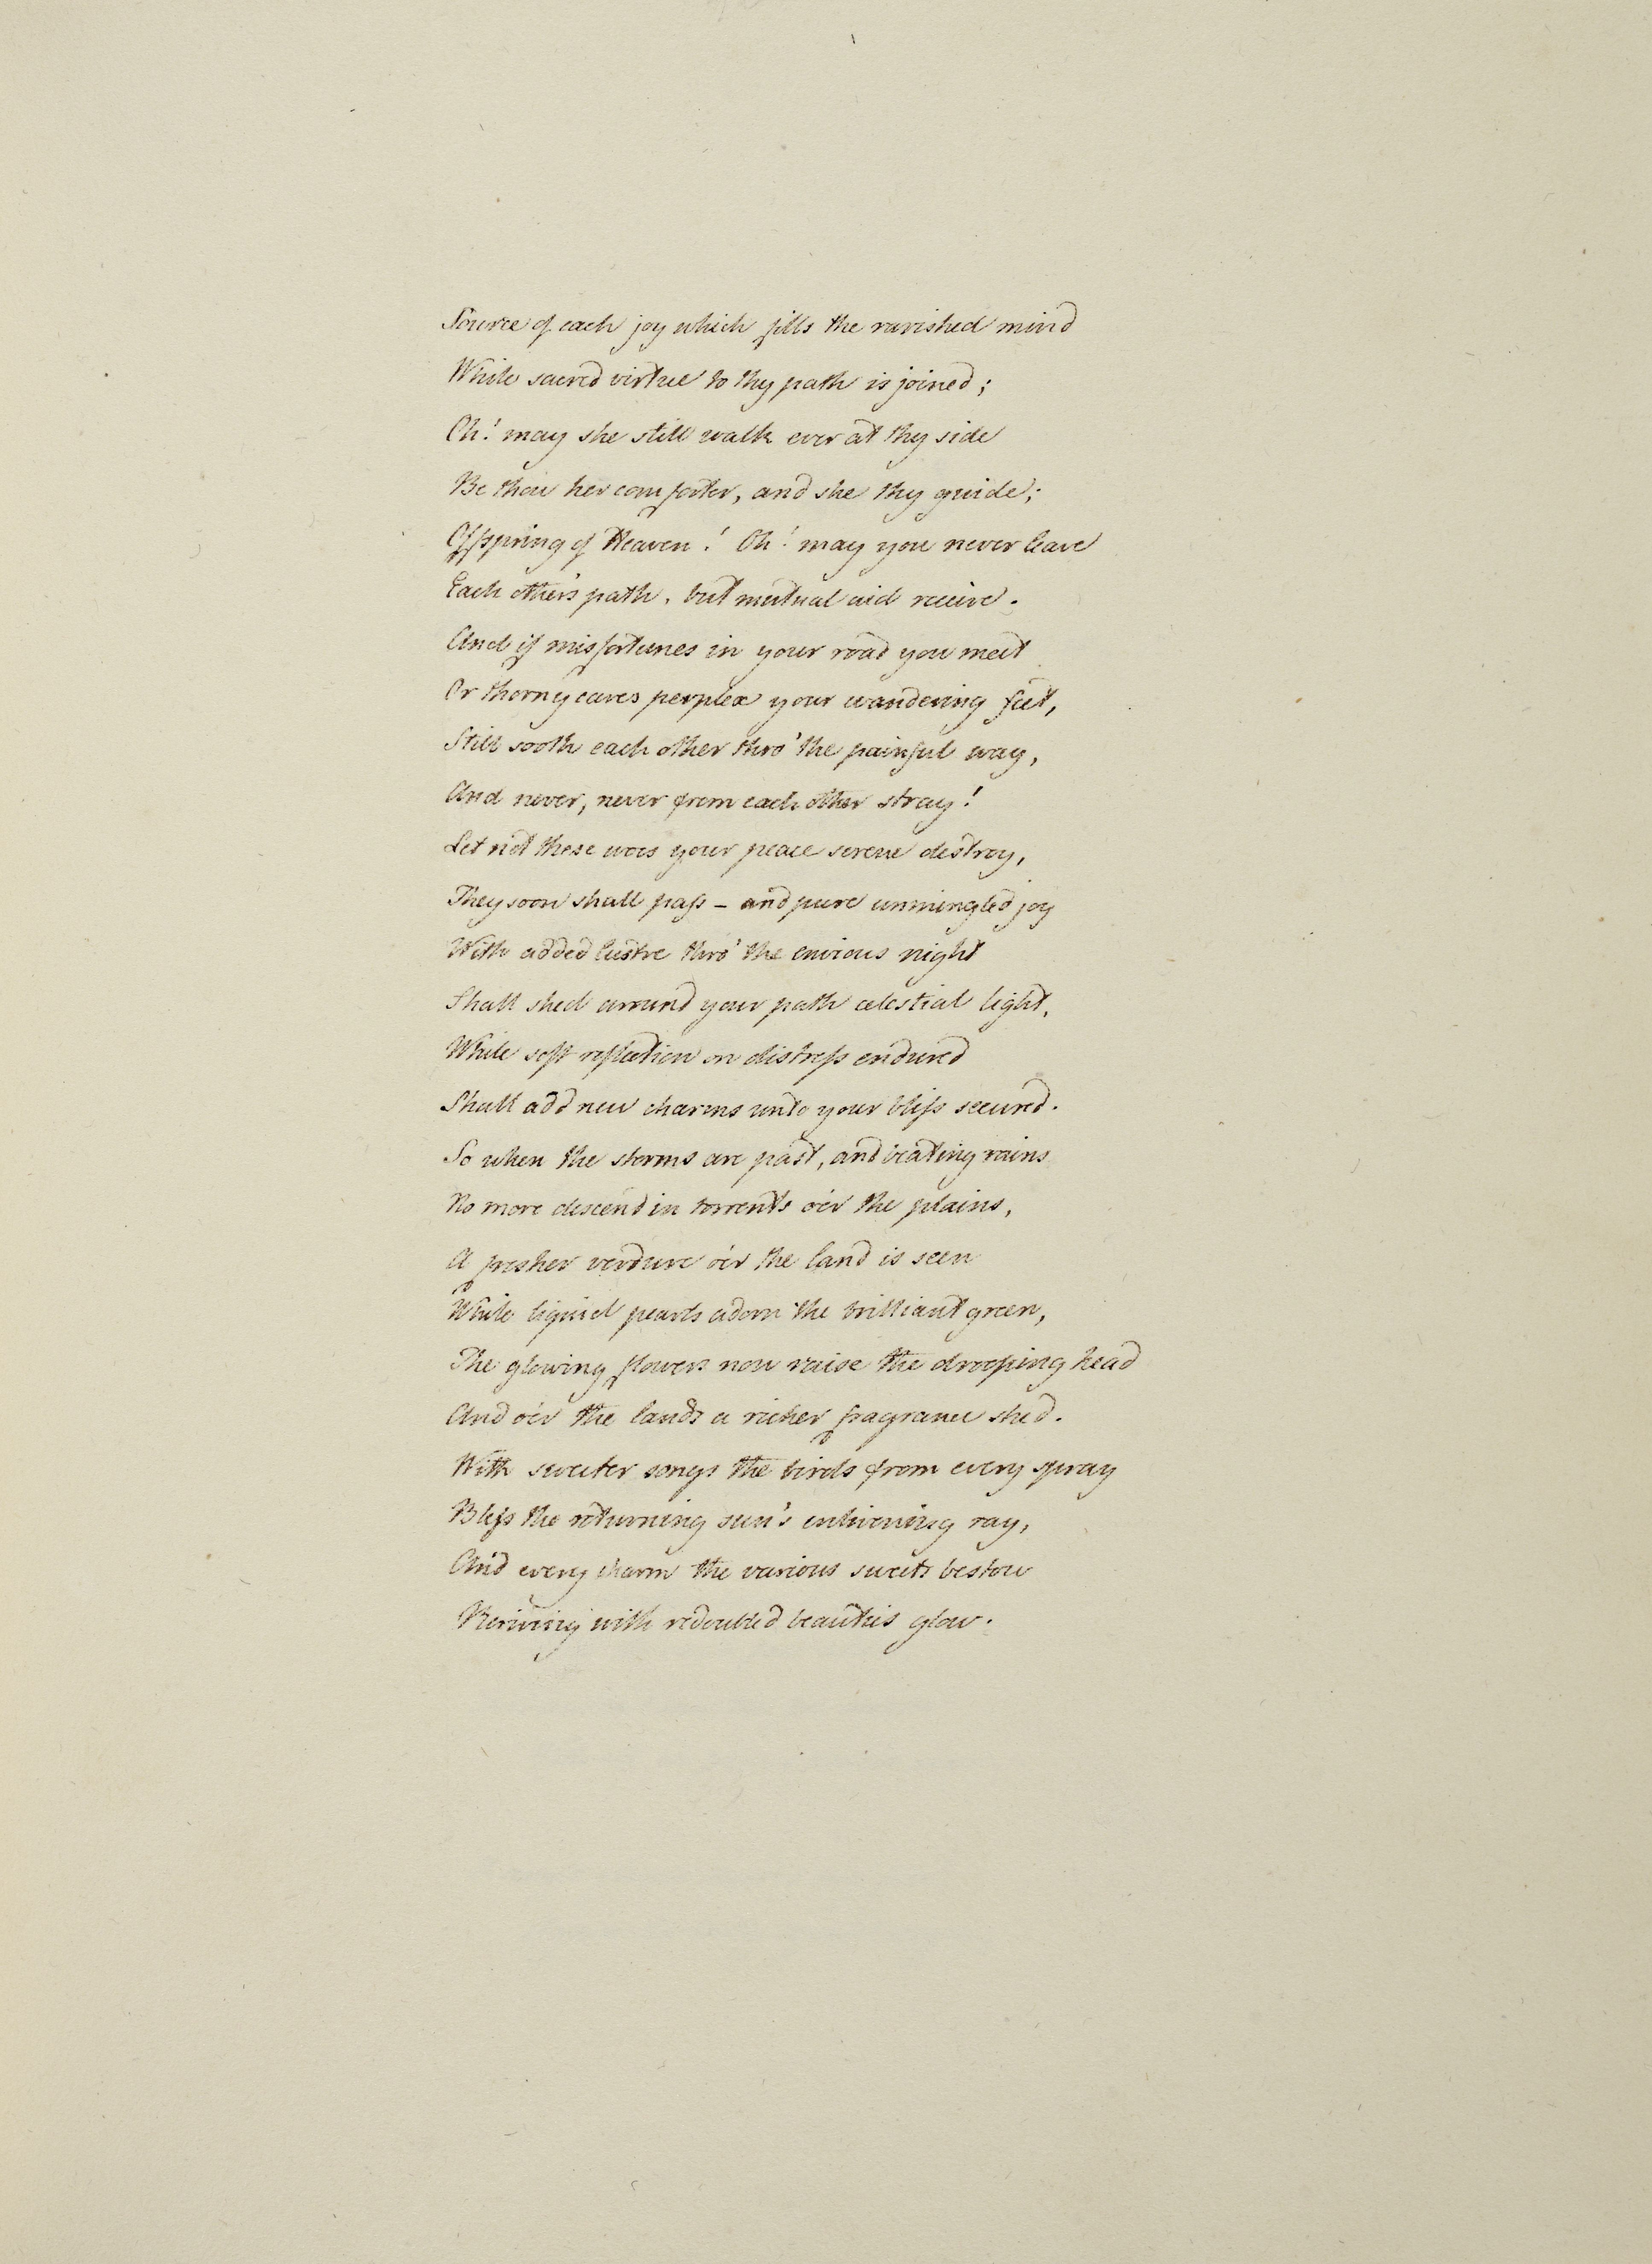 Source of each joy which fills the ravished mind
While sacred virtue to thy path is joined;
Oh! may she still walk ever at thy side
Be thou her comforter, and she thy guide;
Offspring of Heaven! Oh! may you never leave
Each other's path, but mutual aid receive.
And if misfortunes in your road you meet
Or thorny cares perplex your wandering feet,
Still sooth each other thro' the painful way,
And never, never from each other stray!
Let not these woes your peace serene destroy,
They soon shall paſs – and pure unmingled joy
With added lustre thro' the envious night
Shall shed arround your path celestial light,
While soft reflection on distreſs endured
Shall add new charms unto your bliſs secured.
So when the storms are past, and beating rains
No more descend in torrents o'er the plains,
A fresher verdure o'er the land is seen
While liquid pearls adorn the brilliant green,
The glowing flowers now raise the drooping head
And o'er the lands a richer fragrance shed.
With sweeter songs the birds from every spray
Bleſs the returning sun's enlivening ray,
And every charm the various sweets bestow
Reviving with redoubled beauties glow.